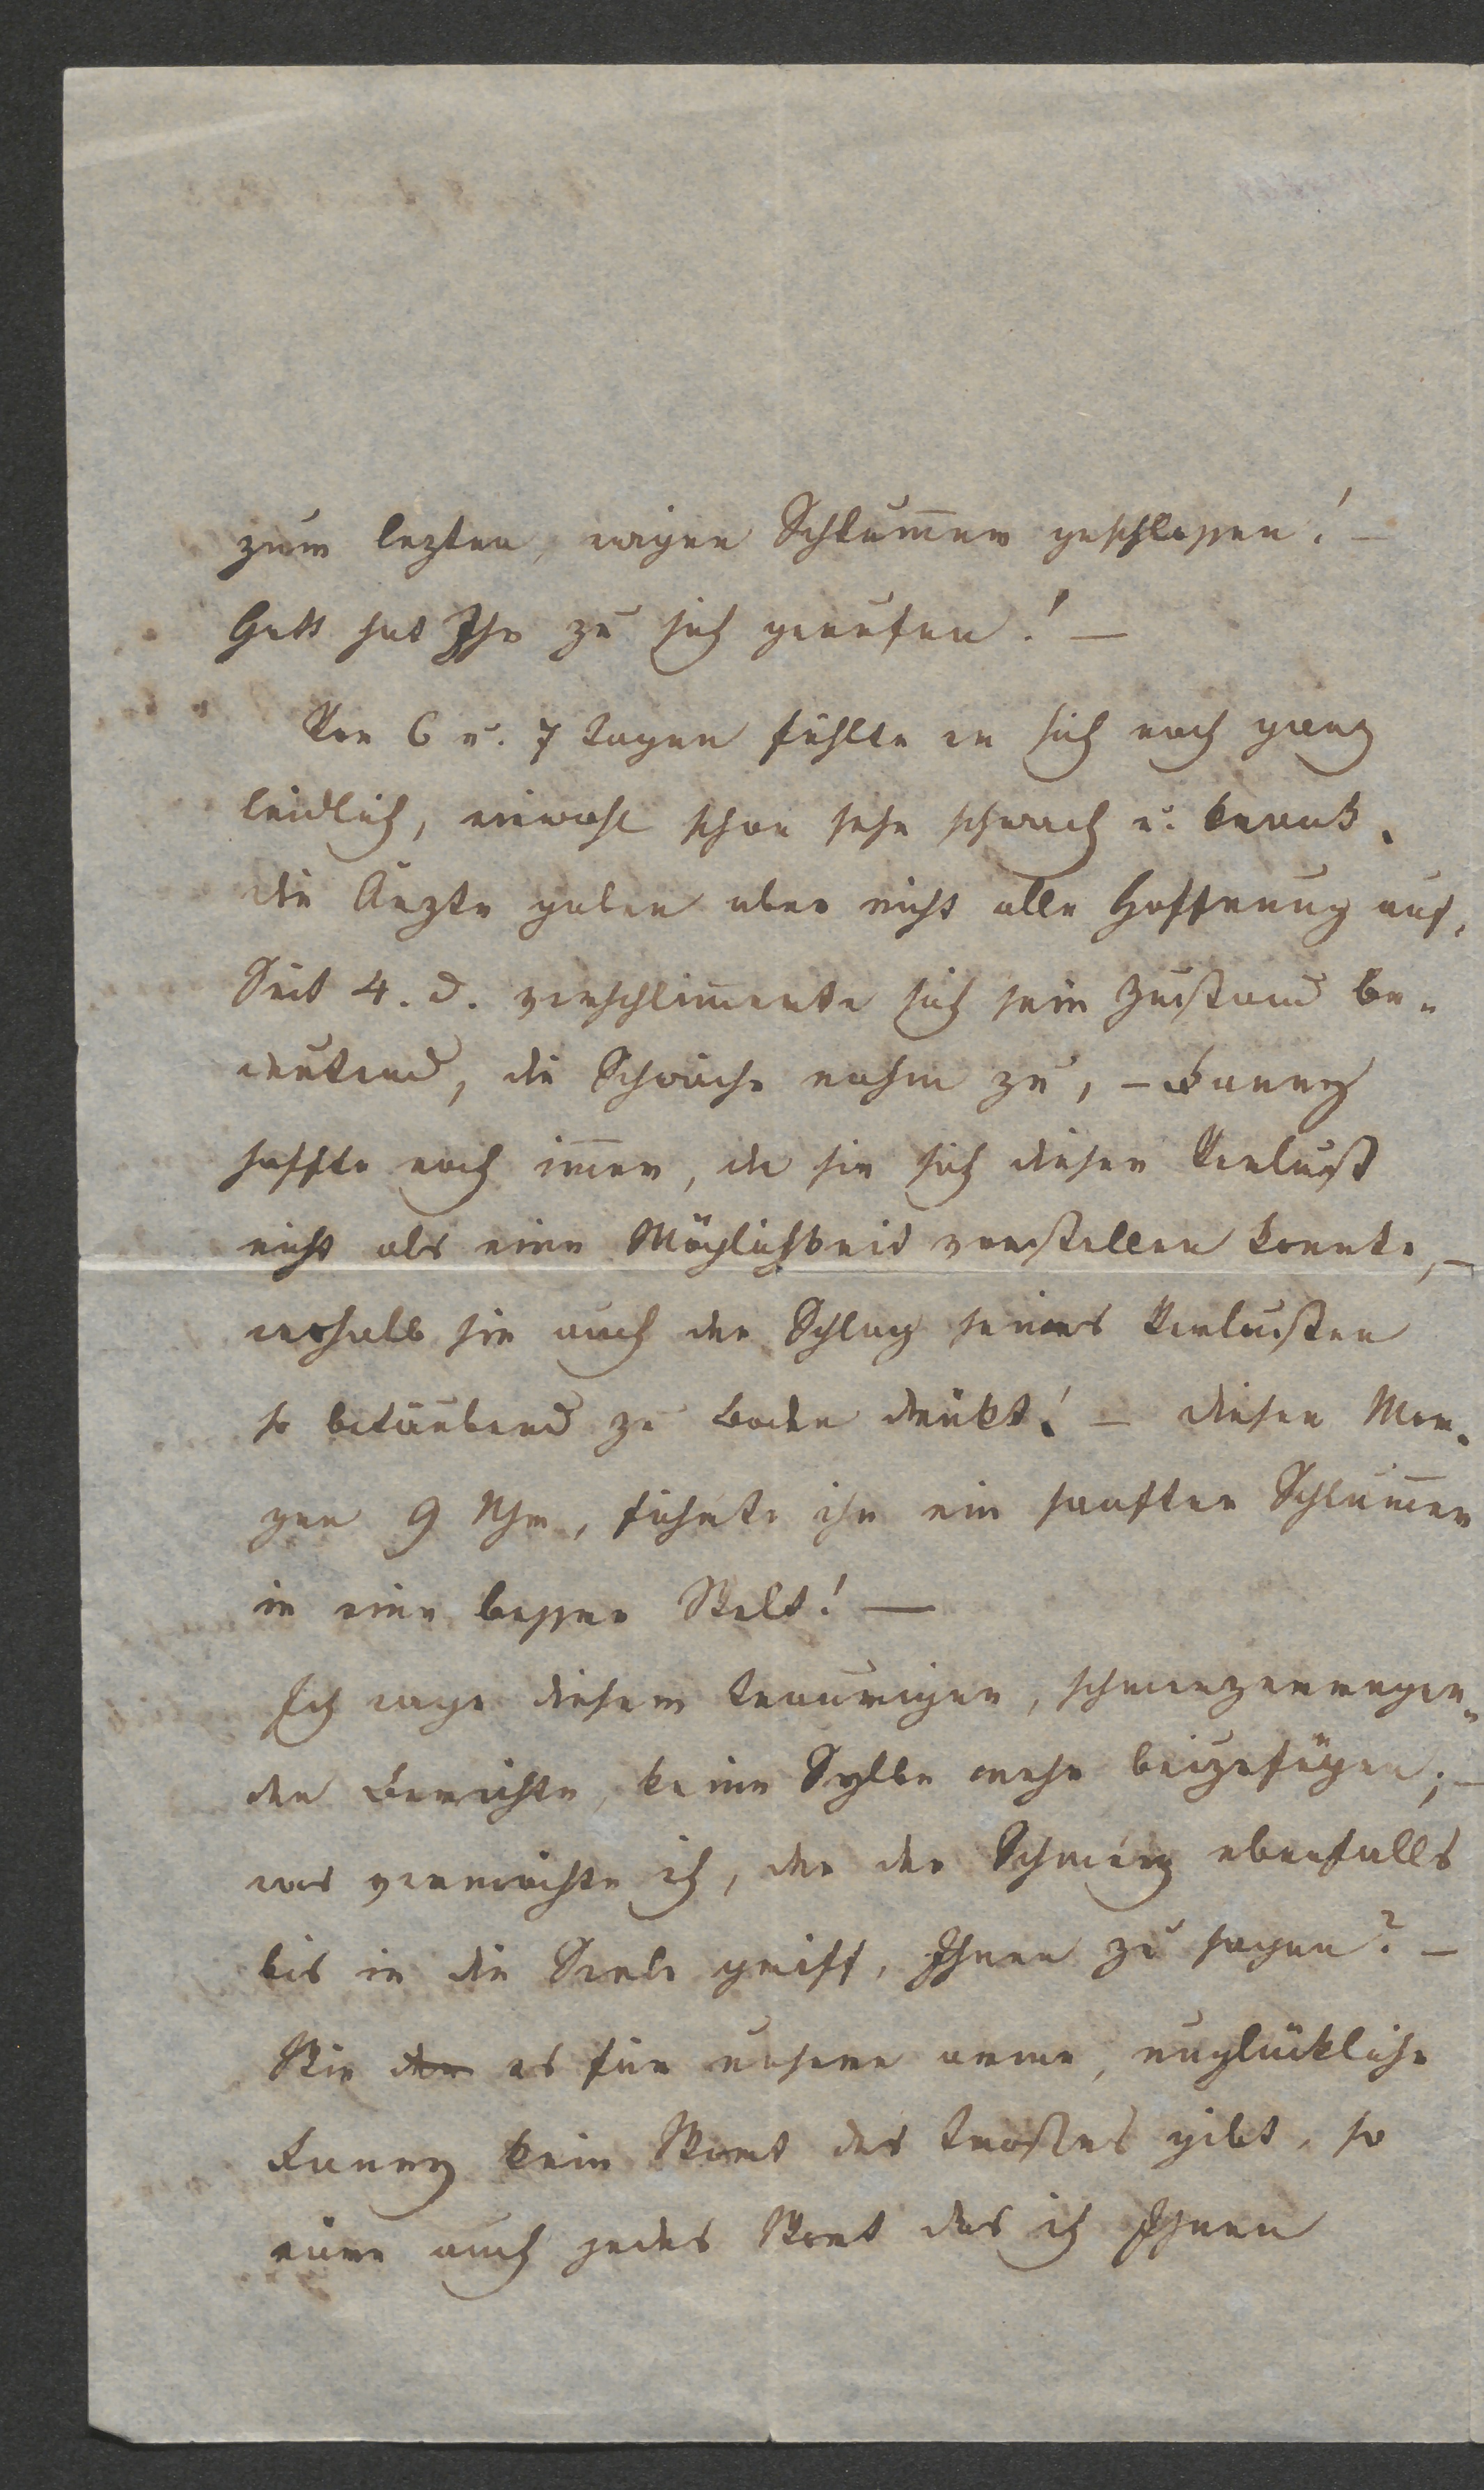 zum lezten, ewigen Schlum̅er geschlossen! –
Gott hat Ihn zu sich gerufen! –
Vor 6 u. 7 Tagen fühlte er sich noch ganz
leidlich, wiewohl schon sehr schwach u. krank.
die Ärzte gaben aber nicht alle Hoffnung auf,
Seit 4. d. verschlim̅erte sich sein Zustand be-
deutend, die Schwäche nahm zu, – Fanny
hoffte noch im̅er, da sie sich diesen Verlust
nicht als eine Möglichkeit vorstellen konnte, –
weshalb sie auch der Schlag seines Verlustes
so betäubend zu Boden drükt! – diesen Mor-
gen 9 Uhr, führte ihn ein sanfter Schlum̅er
in eine bessere Welt! –
Ich wage diesem traurigen, schmerzerregen-
den Berichte, keine Sylbe mehr beizufügen; –
was vermöchte ich, dem der Schmerz ebenfalls
bis in die Seele greift, Ihnen zu sagen? –
Wie es für unsere arme, unglückliche
Fanny kein Wort des Trostes gibt, so
wäre auch jedes Wort das ich Ihnen